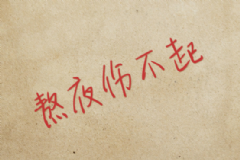 熬夜伤不起